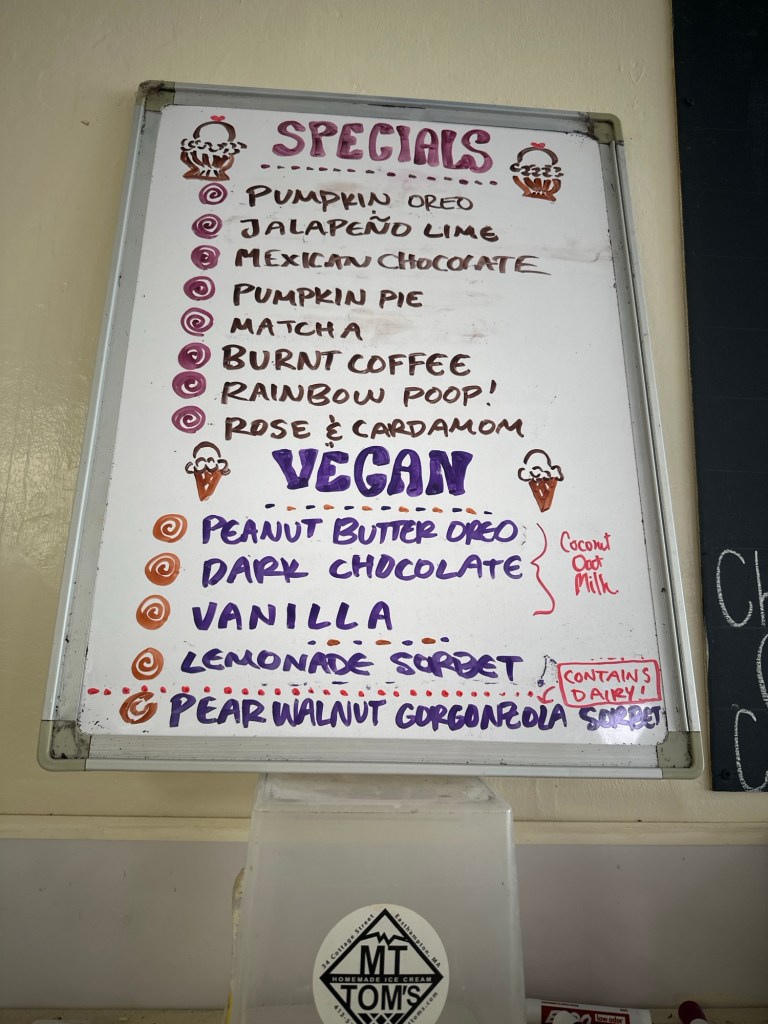 SPECIALS
PUMPKIN OREO
JALAPEÑO LIME
MEXICAN CHOCOLATE
PUMPKIN PIE
MATCHA
BURNT COFFEE
RAINBOW POOP!
ROSE & CARDAMOM
VEGAN
PEANUT BUTTER OREO
DARK CHOCOLATE
VANILLA
Coconut
Oat
Milk
LEMONADE SORBET
CONTAINS
DAIRY!
PEAR WALNUT GORGONZOLA SORBET
Ch
C
34 Cottage Street Easthampton, MA
MT
HOMEMADE ICE CREAM
TOM'S
EXPO low odor